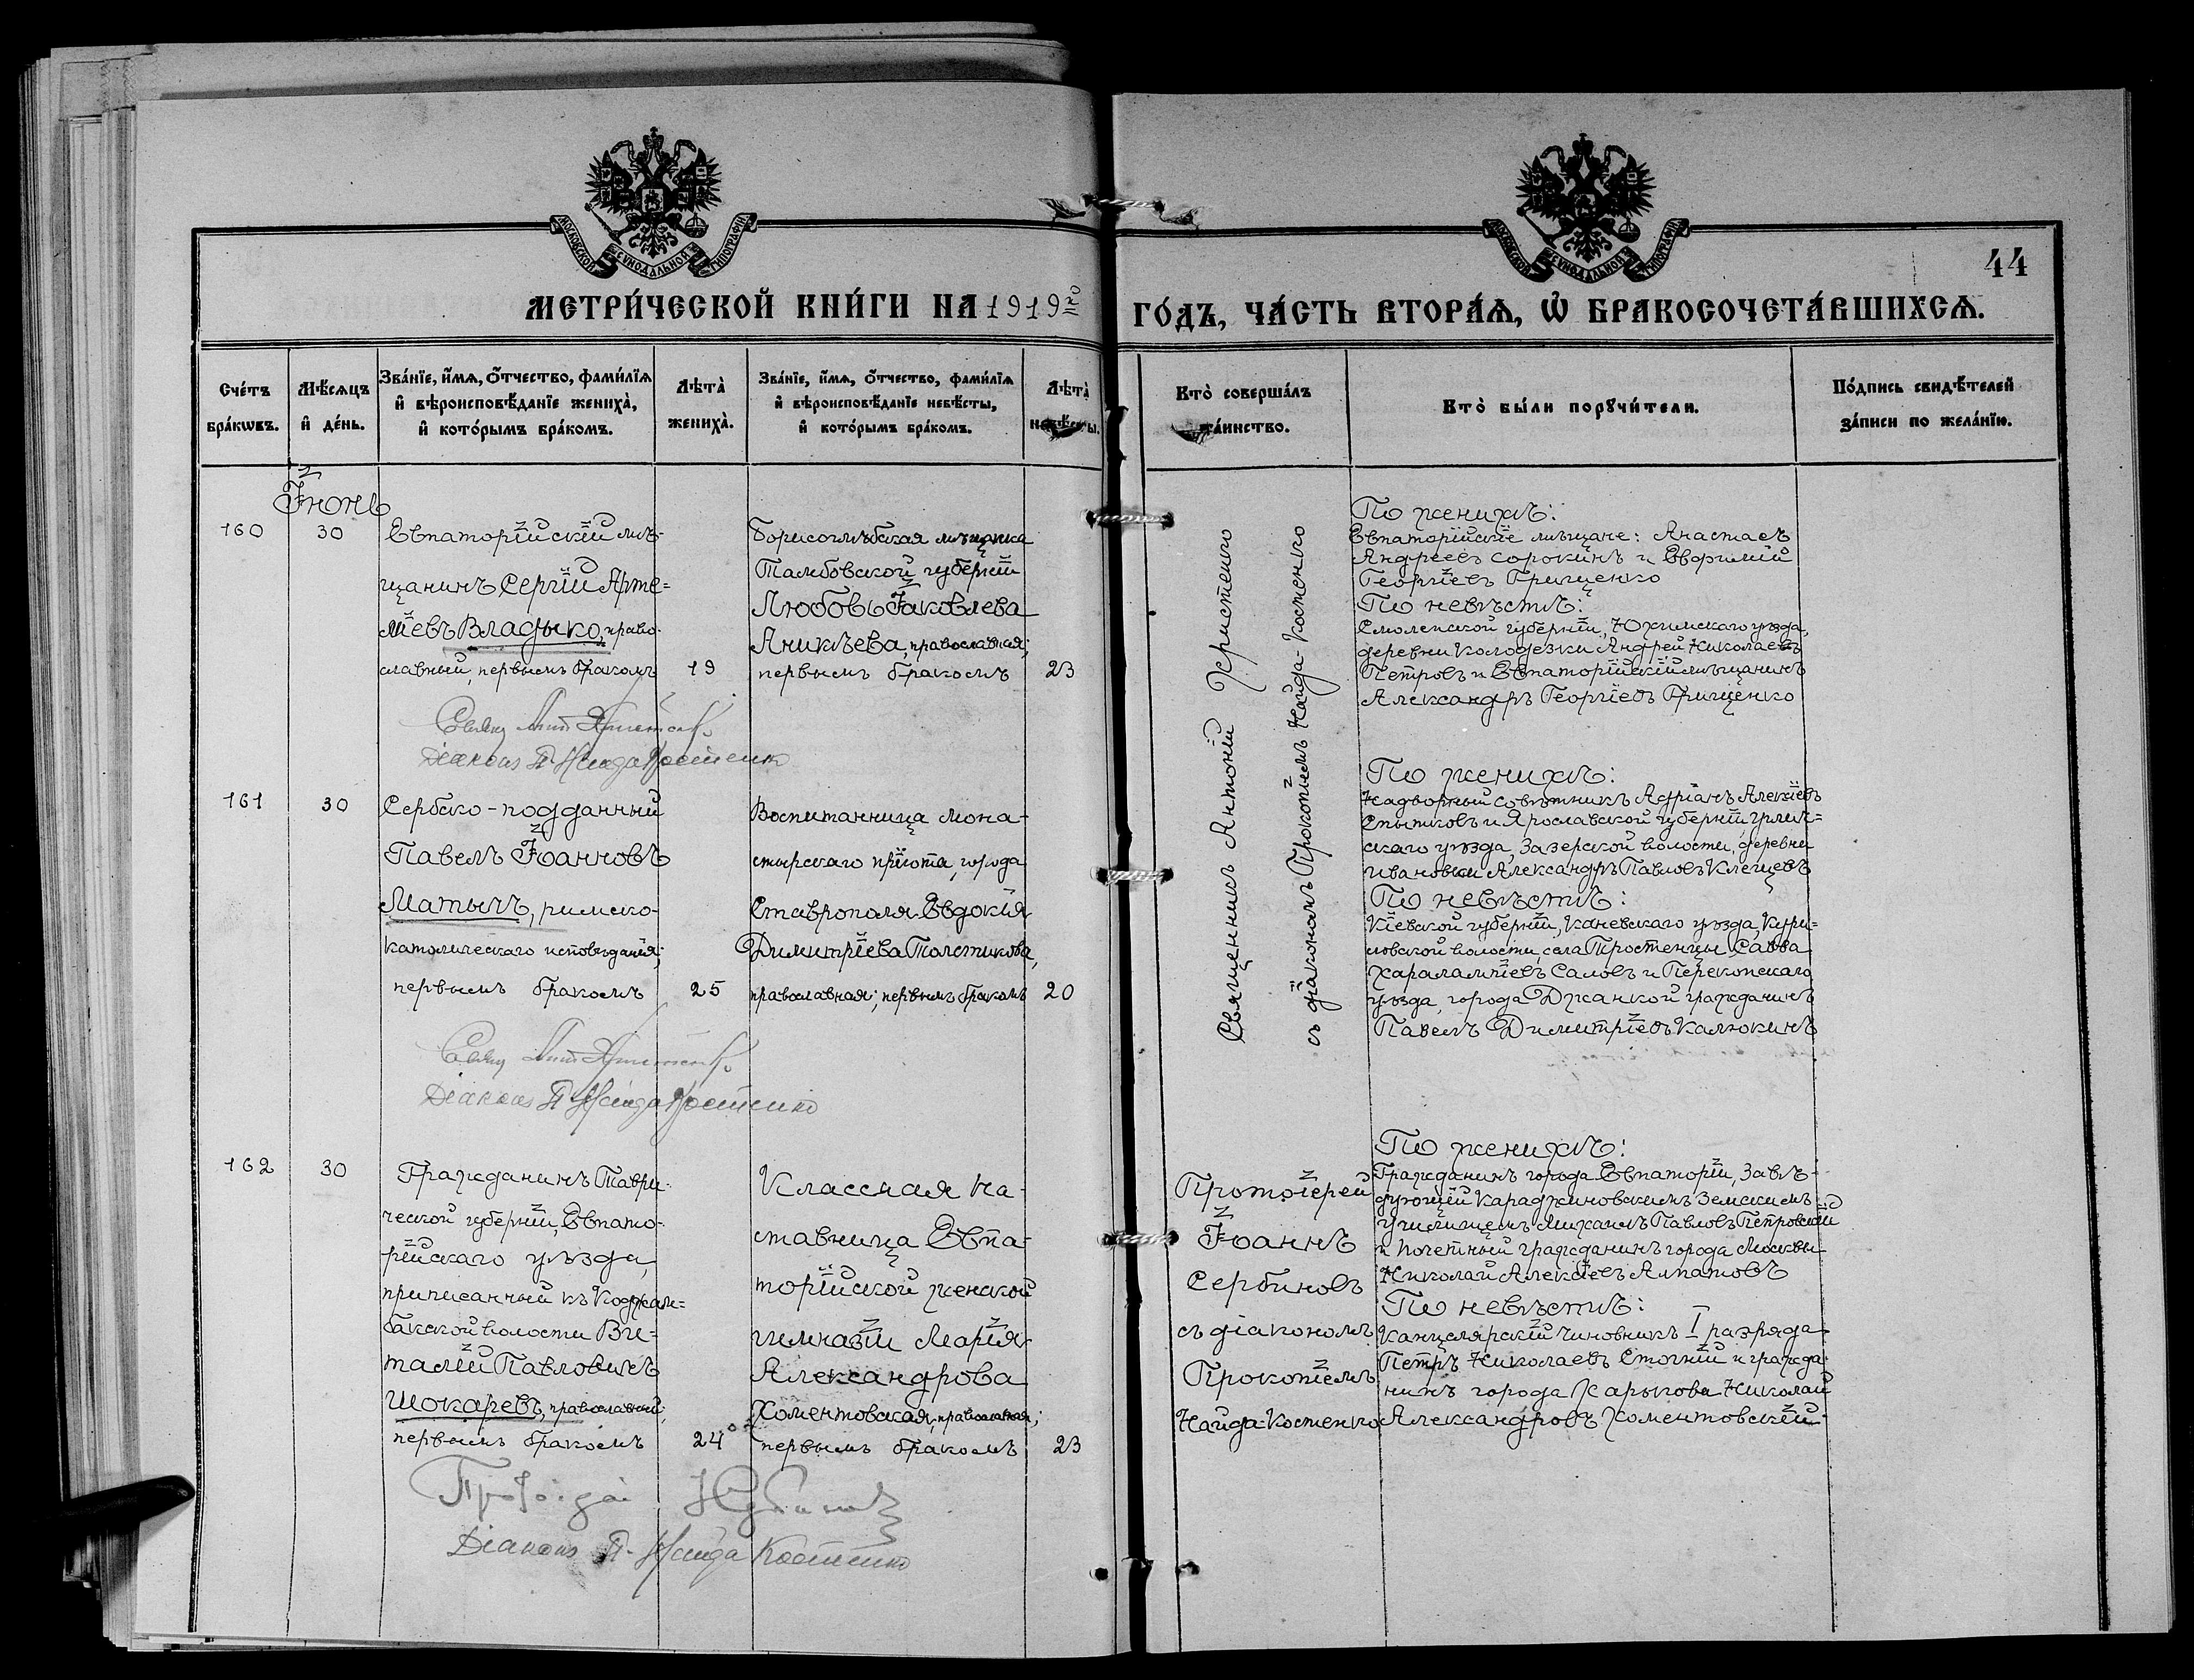 МОСКОВСКОЙ СѴНОДАЛЬНОЙ ТИПОГРАФІИ
МОСКОВСКОЙ СѴНОДАЛЬНОЙ ТИПОГРАФІИ
44
МЕТРИ́ЧЕСКОЙ КНИ́ГИ НА 1919 го́дъ, ча́сть втора́ѧ, ѡ҆ бракосочета́вшихсѧ.
Сче́тъ бра́кѡвъ.
Мѣ́сѧцъ и҆ де́нь.
Зва́нїе, и҆́мѧ, ѻ҆́тчество, фами́лїѧ
и҆ вѣроисповѣ́данїе жениха̀,
и҆ кото́рымъ бра́комъ.
Лѣта̀ жениха̀.
Зва́нїе, и҆́мѧ, ѻ҆́тчество, фами́лїѧ
и҆ вѣроисповѣ́данїе невѣ́сты,
и҆ кото́рымъ бра́комъ.
Лѣта̀ невѣ́сты.
Кто̀ соверша́лъ та́инство.
Кто̀ бы́ли порꙋчи́тели.
По́дпись свидѣ́телей
за́писи по жела́нїю.
Іюнь
160
30
Евпаторійскій мѣ-
щанинъ Сергій Арте=
міевъ Владыко, право-
славный, первымъ бракомъ
19
Борисоглѣбская мѣщанка
Тамбовской губерніи
Любовь Іаковлева
Аникѣева, православная;
первымъ бракомъ
23
Священникъ Антоній Христенко
съ діакономъ Прокопіемъ Найда-Костенко
По женихѣ:
Евпаторійскіе мѣщане: Анастасъ
Андреевъ Сорокинъ и Евфимій
Георгіевъ Грищенко
По невѣстѣ:
Смоленской губерніи, Юхимскаго уѣзда,
деревни Колодезки Андрей Николаевъ
Петровъ и Евпаторійскій мѣщанинъ
Александръ Георгіевъ Грищенко
Діаконъ П. Найда Костенко
161
30
Сербско-подданный
Павелъ Іоанновъ
Матычъ, римско-
католическаго исповѣданія;
первымъ бракомъ
25
Воспитанница мона-
стырскаго пріюта, города
Ставрополя Евдокія
Димитріева Толстикова,
православная; первымъ бракомъ
20
По женихѣ:
Надворный совѣтникъ Адріанъ Алексіевъ
Спытковъ и Ярославской губерніи, Углич=
скаго уѣзда, Заозерской волости, деревни
Ивановки Александръ Павловъ Клещевъ
По невѣстѣ:
Кіевской губерніи, Каневскаго уѣзда, Кури=
ловской волости, села Тростенцы Савва
Харалампіевъ Саловъ и Перекопскаго
уѣзда, города Джанкой гражданинъ
Павелъ Димитріевъ Калюкинъ
Діаконъ П. Найда Костенко
162
30
Гражданинъ Таври-
ческой губерніи, Евпато-
рійскаго уѣзда,
приписанный къ Коджам=
бакской волости Ви=
талій Павловичъ
Шокаревъ, православный;
первымъ бракомъ
24
Классная на-
ставница Евпа-
торійской женской
гимназіи Марія
Александрова
Хоментовская, православная;
первымъ бракомъ
23
Протоіерей
Іоаннъ
Сербиновъ
съ діакономъ
Прокопіемъ
Найда-Костенко
По женихѣ:
Гражданинъ города Евпаторіи, завѣ-
дующій Караджиновскимъ земскимъ
училищемъ Михаилъ Павловъ Петровскій
и почетный гражданинъ города Москвы
Николай Алексіевъ Алпатовъ
По невѣстѣ:
Канцелярскій чиновникъ I разряда
Петръ Николаевъ Стогній и гражда-
нинъ города Харькова Николай
Александровъ Хоментовскій
Діаконъ П. Найда Костенко